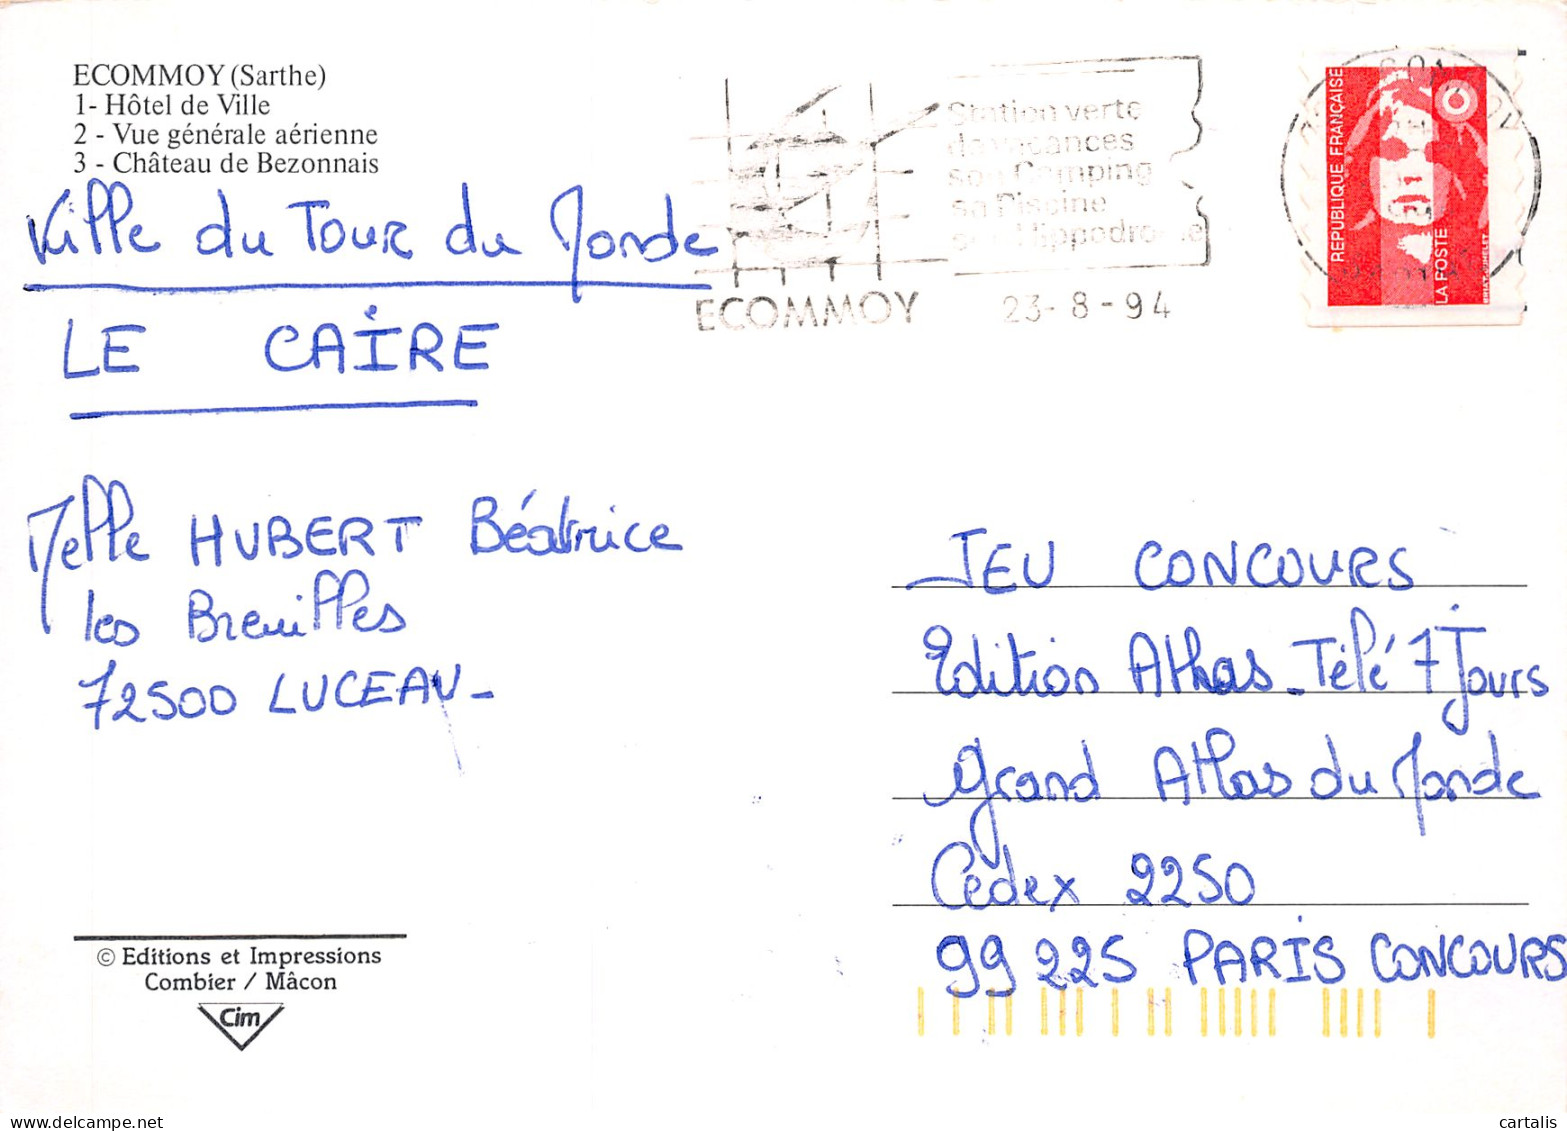 ECOMMOY (Sarthe)
1- Hôtel de Ville
2 - Vue générale aérienne
3 - Château de Bezonnais
Ville du Tour du Monde
LE CAIRE
Station verte
de vacances
son Camping
sa Piscine
son Hippodrome
ECOMMOY
23-8-94
REPUBLIQUE FRANÇAISE
LA POSTE
Melle HUBERT Béatrice
les Breuilles
72500 LUCEAU-
JEU CONCOURS
Edition Athas-Télé 7 Jours
Grand Atlas du Monde
Cedex 2250
99225 PARIS CONCOURS
© Editions et Impressions
Combier / Mâcon
Cim
cartalis